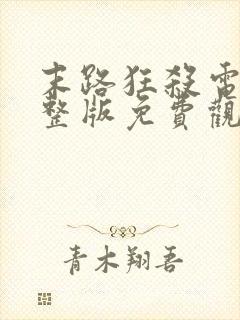 末路狂殺電
整版免費觀
青木翔吾